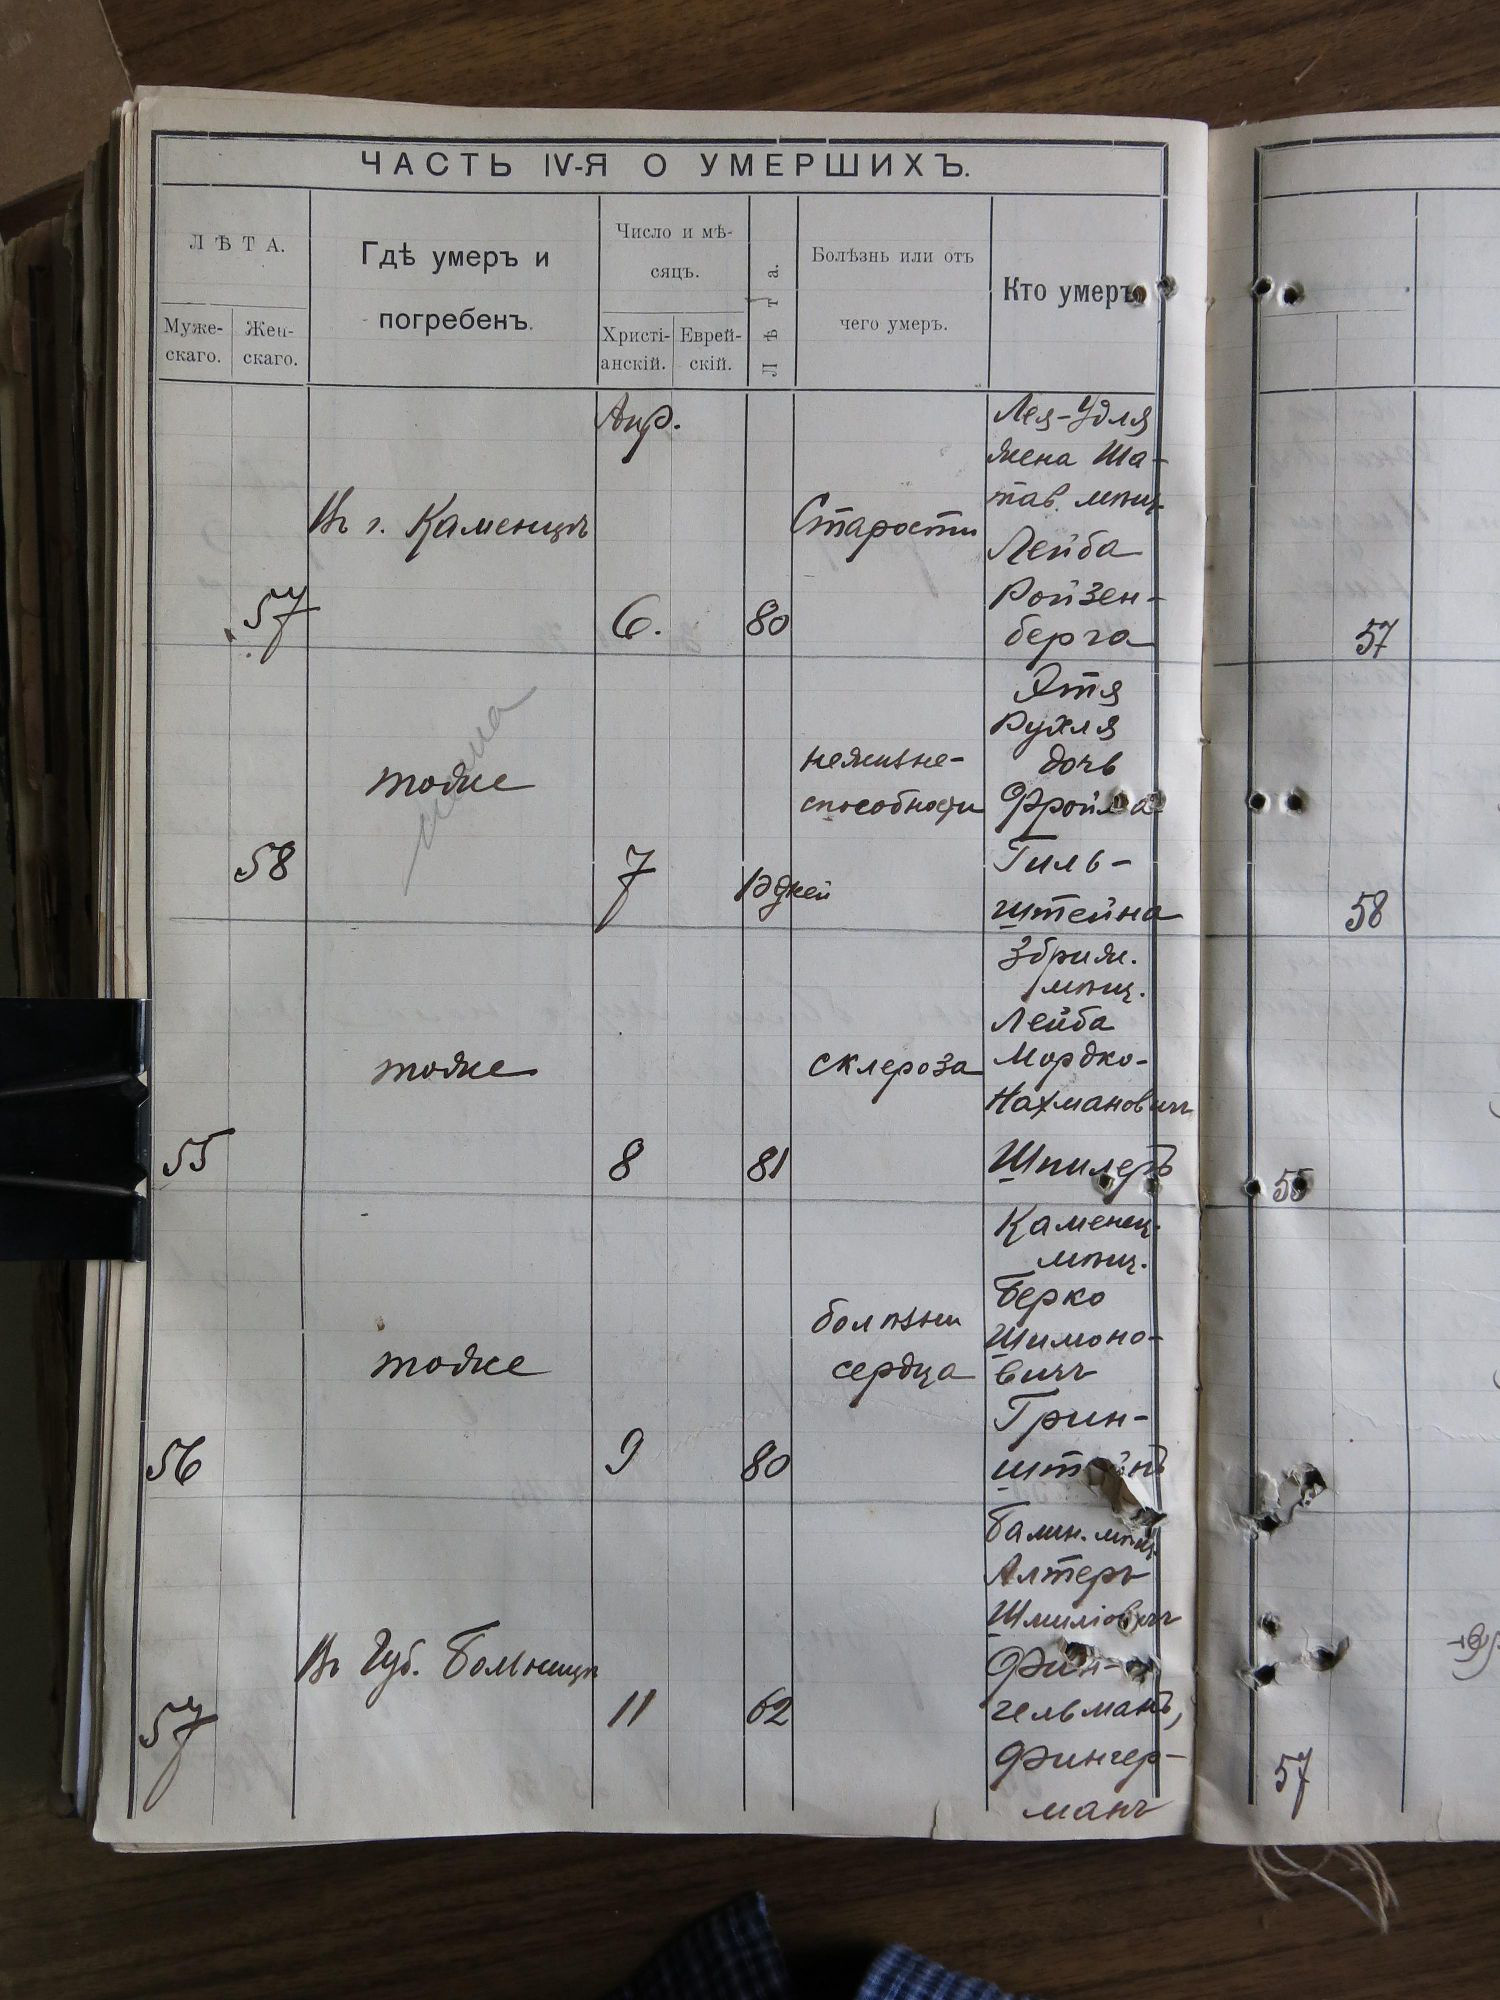 ЧАСТЬ IV-Я О УМЕРШИХЪ.
ЛѢТА.
Муже-
скаго.
Жен-
скаго.
Гдѣ умеръ и
погребенъ.
Число и мѣ-
сяцъ.
Христі-
анскій.
Еврей-
скій.
Лѣта.
Болѣзнь или отъ
чего умеръ.
Кто умеръ
57
Въ г. Каменцѣ
Апр.
6.
80
Старости
Лея-Удля
жена Ша-
тав. мѣщ.
Лейба
Ройзен-
берга
57
58
тоже
7
12 дней
нежизне-
способности
Этя
Рухля
дочь
Фройма
Гиль-
штейна
58
55
тоже
8
81
склероза
Збриж.
мѣщ.
Лейба
Мордко-
Нахмановичъ
Шпилеръ
55
56
тоже
9
80
болѣзни
сердца
Каменец.
мѣщ.
Берко
Шимоно-
вичъ
Грин-
57
Въ Губ. Больницѣ
11
62
Балин. мѣщ.
Алтеръ
Шмиліовичъ
Фин-
гельманъ,
Фингер-
манъ
57